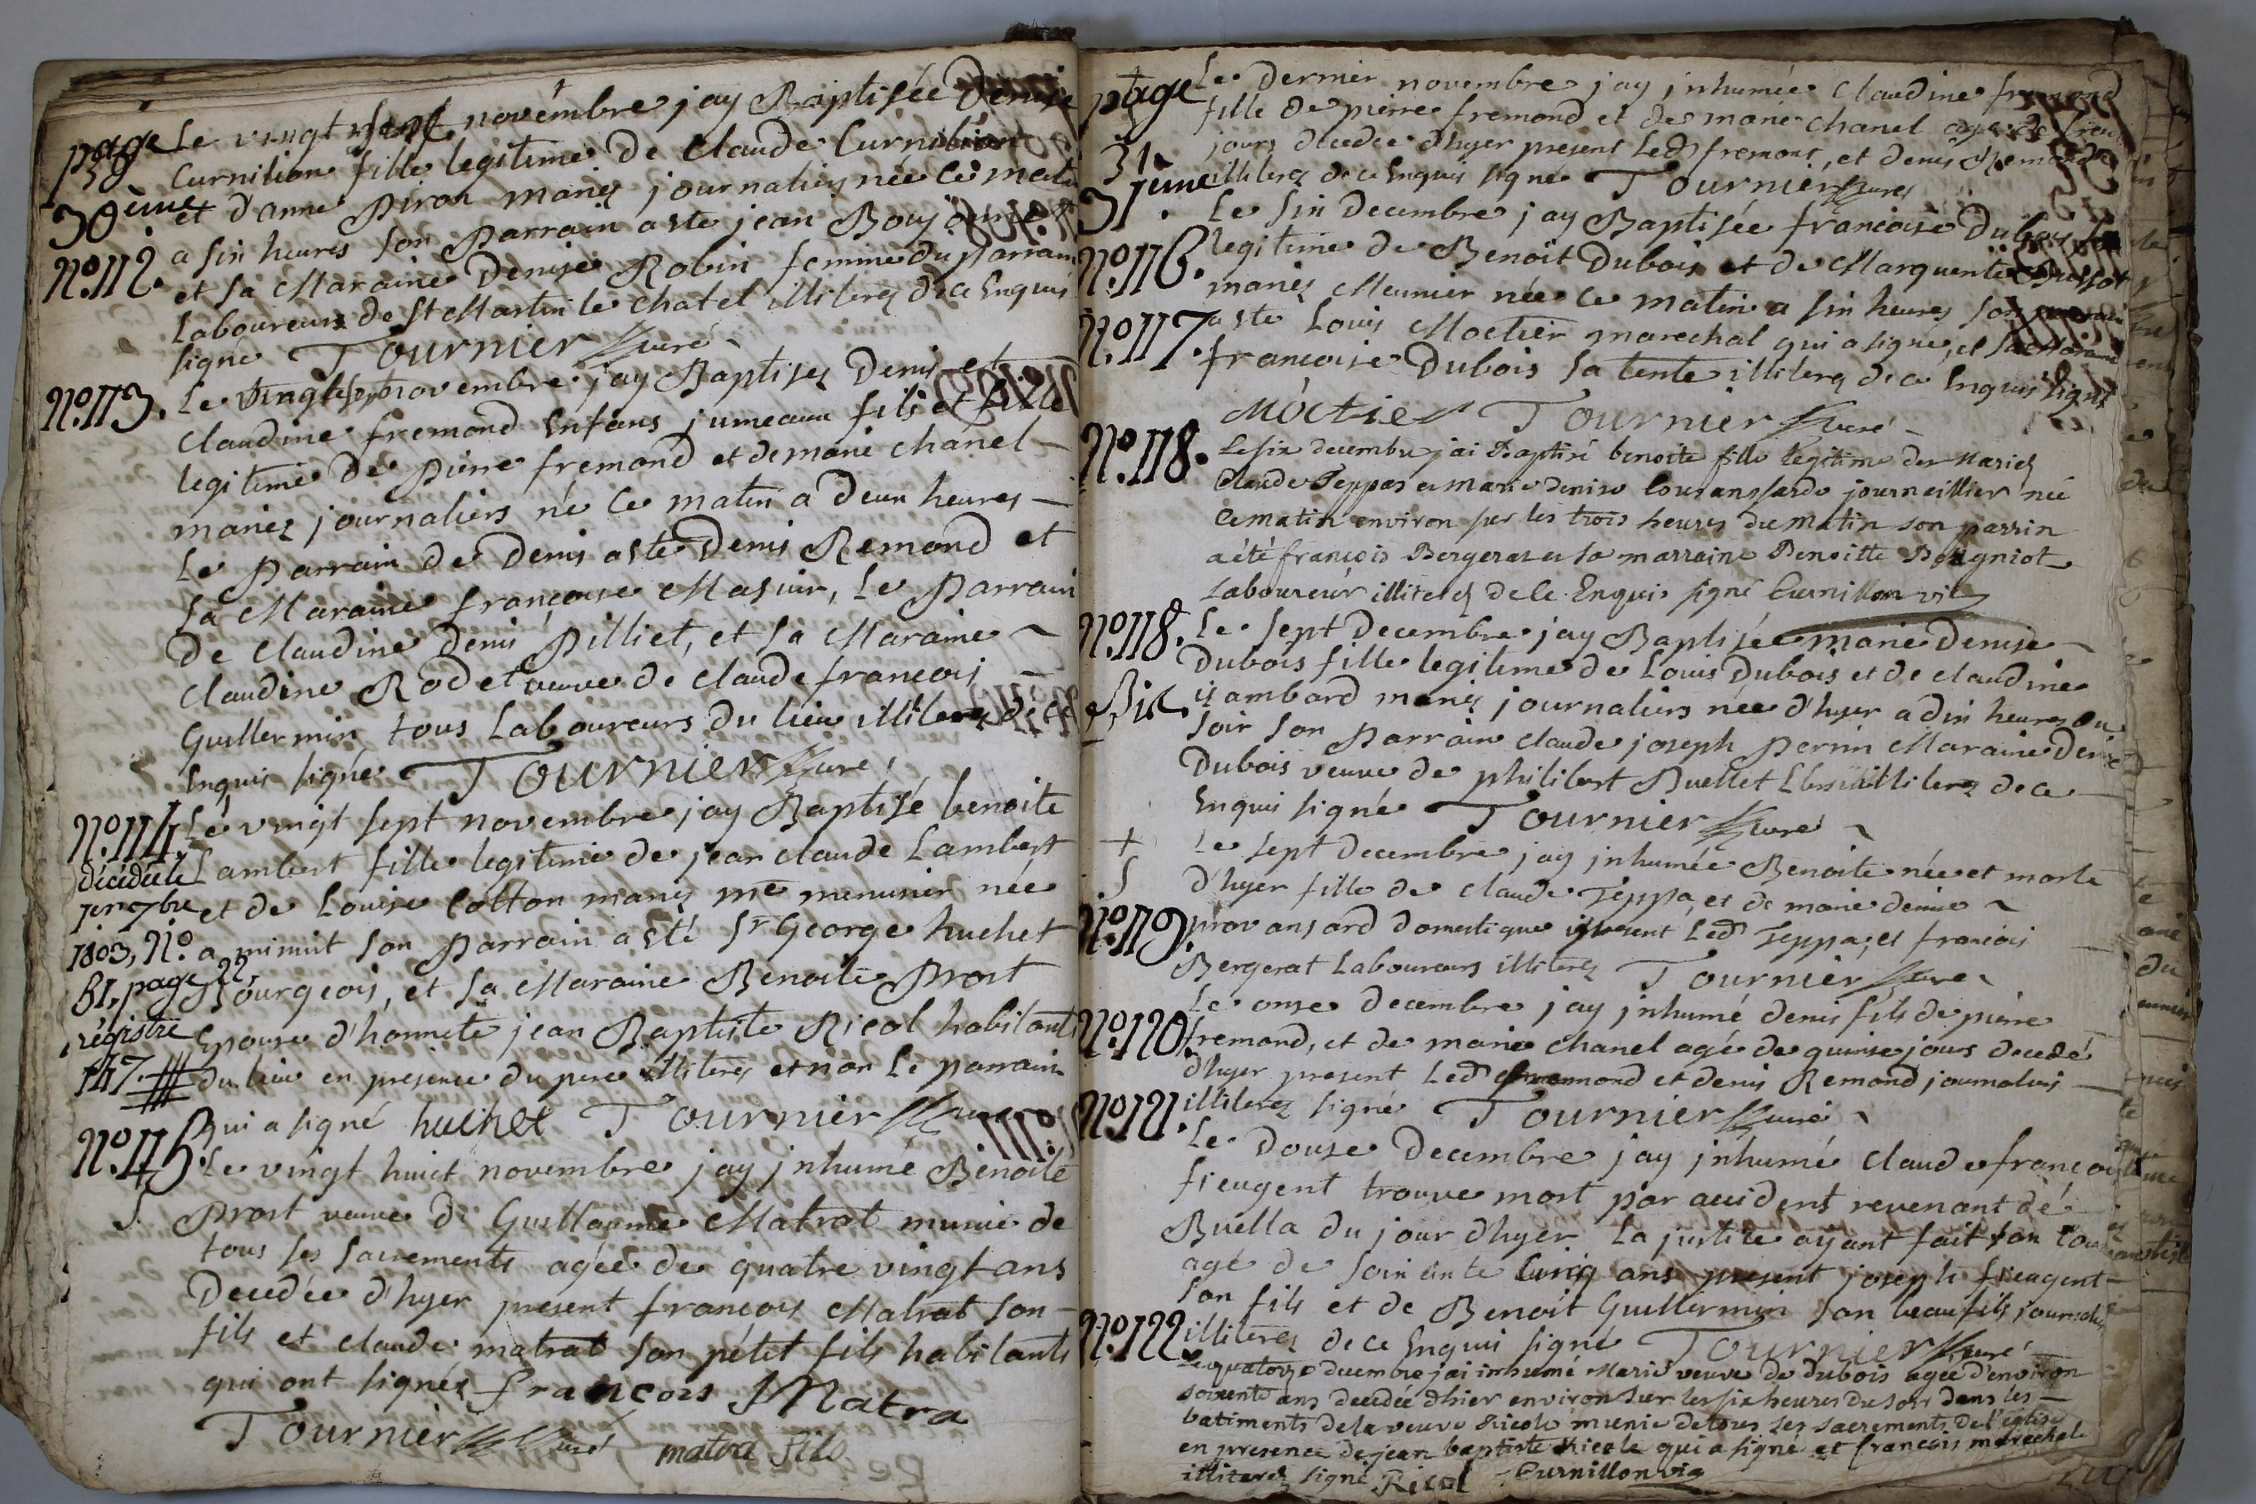 page
30
30ème
Le vingt sept novembre jay Baptisée Denise
Curnilion fille legitime de Claude Curnilion
et d'anne Piron mariez journaliers née ce matin
N°. 112.
a six heures son Parrain a ete jean Bouj
et sa Maraine Denise Robin femme du Parrain
Laboureurs de St Martin le chatel illiterez de ce Enquis
signé Tournier Curé
N°. 113.
Le vingt sept novembre jay Baptisez Denis et
Claudine fremond Enfans jumeaux fils et fille
legitime de Pierre fremond et de marie chanel
mariez journaliers né ce matin a deux heures
Le Parrain de Denis a ete Denis Remond et
sa Maraine françoise Masuir, Le Parrain
de Claudine Denis Pilliet, et sa Maraine
Claudine Rodet veuve de Claude françois
Guillermin tous Laboureurs du lieu illiterez de ce
Enquis signé Tournier Curé
N°. 114.
décédée le
1er 7bre
1803, N°.
81, page 22,
régistre
147.
Le vingt sept novembre jay Baptisé benoite
Lambert fille legitime de jean claude Lambert
et de Louise Cotton mariez me menusier née
a minuit son Parrain a eté Sr George huchet
Bourgeois, et sa Maraine Benoite Prost
Epouse d'honnete jean Baptiste Ricol habitants
du lieu en presence du pere illiterés et non Le parrain
Qui a signé huchet Tournier Curé
N°. 115.
S.
Le vingt huict novembre jay jnhumé Benoite
Prost veuve de Guillaume Matrat munie de
tous ses sacrements agée de quatre vingt ans
Decedée d'hyer present francois Matrat son
fils et claude matrat son pétit fils habitants
qui ont signéz francois Matra
Tournier Curé matra fils
page
31
31ème
Le dernier novembre jay jnhumée Claudine fremond
fille de pierre fremond et de marie chanel agée de
jours decedee d'hyer present Led fremont, et denis Remond
illiterez de ce Enquis signé Tournier Curé
N°. 116.
N°. 117.
Le six Decembre jay Baptisée francoise Dubois fille
legitime de Benoit Dubois et de Marguerite
mariez Meunier née ce matin a six heures son parrain
a ete Louis Moctier marechal qui a signé, et sa Maraine
francoise Dubois sa tente illiterez de ce Enquis signé
Moctier Tournier Curé
N°. 118.
Le six decembre jai Baptisé benoite fille legitime des Mariés
Claude Teppas et Marie denise journeillier née
ce matin environ sur les trois heures du matin son parrin
a été françois Bergerat et sa marraine Benoitte
Laboureur illiterés de ce Enquis signé Curnillon vic
N°. 118.
Bis
Le sept Decembre jay Baptisée marie Denise
Dubois fille legitime de Louis Dubois et de claudine
isambard mariez journaliers née d'hyer a dix heures du
soir son Parrain claude joseph Perrin Maraine Denise
Dubois veuve de philibert Buellet illiterez de ce
Enquis signé Tournier Curé
+
S
N°. 119.
Le sept decembre jay jnhumée Benoite née et morte
d'hyer fille de claude Teppa, et de marie denise
provansard domestique present Led Teppa, et francois
Bergerat Laboureurs illiterez Tournier Curé
N°. 120.
Le onse decembre jay jnhumé denis fils de pierre
fremond, et de marie chanel agé de quinse jours decedé
d'hyer present Led fremond et denis Remond journaliers
illiterez signé Tournier Curé
N°. 121.
Le douse Decembre jay jnhumé claude francois
fieugent trouve mort par accident revenant de
Buella du jour d'hyer La justice ayant fait son
agé de soixante cinq ans present joseph fieugent
son fils et de Benoit Guillermin son beau fils journaliers
illiterez de ce Enquis signé Tournier Curé
N°. 122.
Le quatorze decembre jai inhumé Marie veuve de dubois agée d'environ
soixente ans decedée d'hier environ sur les six heures du soir dans les
batiments de la veuve Ricole munie de tous les sacrements de l'église
en presence de jean baptiste Ricole qui a signé et francois marechale
illiterez signé Ricol Curnillon vic